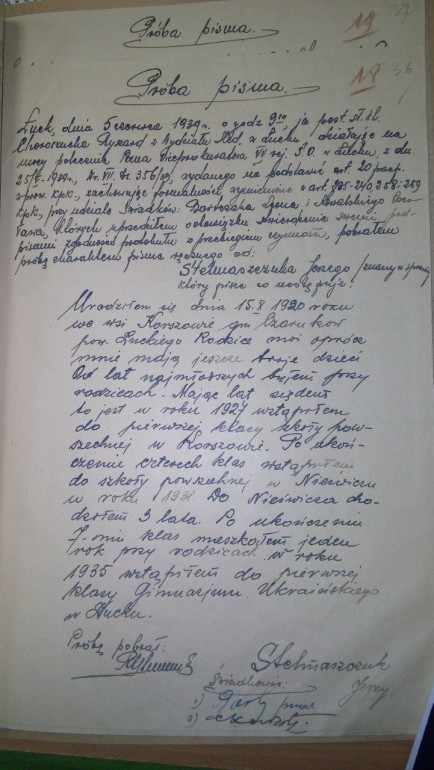 37
Próba pisma.
19
Próba pisma.
18
36
Łuck, dnia 5 czerwca 1939 r. o godz 9¹⁰, ja post. sł. śl.
Ryszard z Wydziału Śled. w Łucku, działając na
mocy polecenia Pana Viceprokuratora VII rej. S.O. w Łucku z dn.
25/V 1939 r., Nr. VII. Ds. 356/39, wydanego na podstawie art. 20 przep.
wprow. kpk., zachowując formalności, wymienione w art. 235-240, 258, 259
kpk., przy udziale świadków
których uprzedziłem o obowiązku stwierdzenia swemi pod-
pisami zgodności protokułu z przebiegiem czynności, pobrałem
próbę charakteru pisma ręcznego od:
Stelmaszczuka Jerzego /znany w sprawie/
który pisze co następuje:
Urodziłem się dnia 15.X 1920 roku
we wsi Korszowie gm Czaruków
pow. Łuckiego Rodzice moi oprócz
mnie mają jeszcze troje dzieci
Od lat najmłodszych byłem przy
rodzicach. Mając lat siedem
to jest w roku 1927 wstąpiłem
do pierwszej klasy szkoły pow-
szechnej w Korszowie. Po ukoń-
czeniu czterech klas wstąpiłem
do szkoły powszechnej w Nieświczu
w roku 1931 Do Nieświcza cho-
dziłem 3 lata. Po ukończeniu
7-miu klas mieszkałem jeden
rok przy rodzicach. w roku
1935 wstąpiłem do pierwszej
klasy Gimnazjum Ukraińskiego
w Łucku.
Próbę pobrał:
Stelmaszczuk
Jerzy.
Świadkowie:
1)
2)